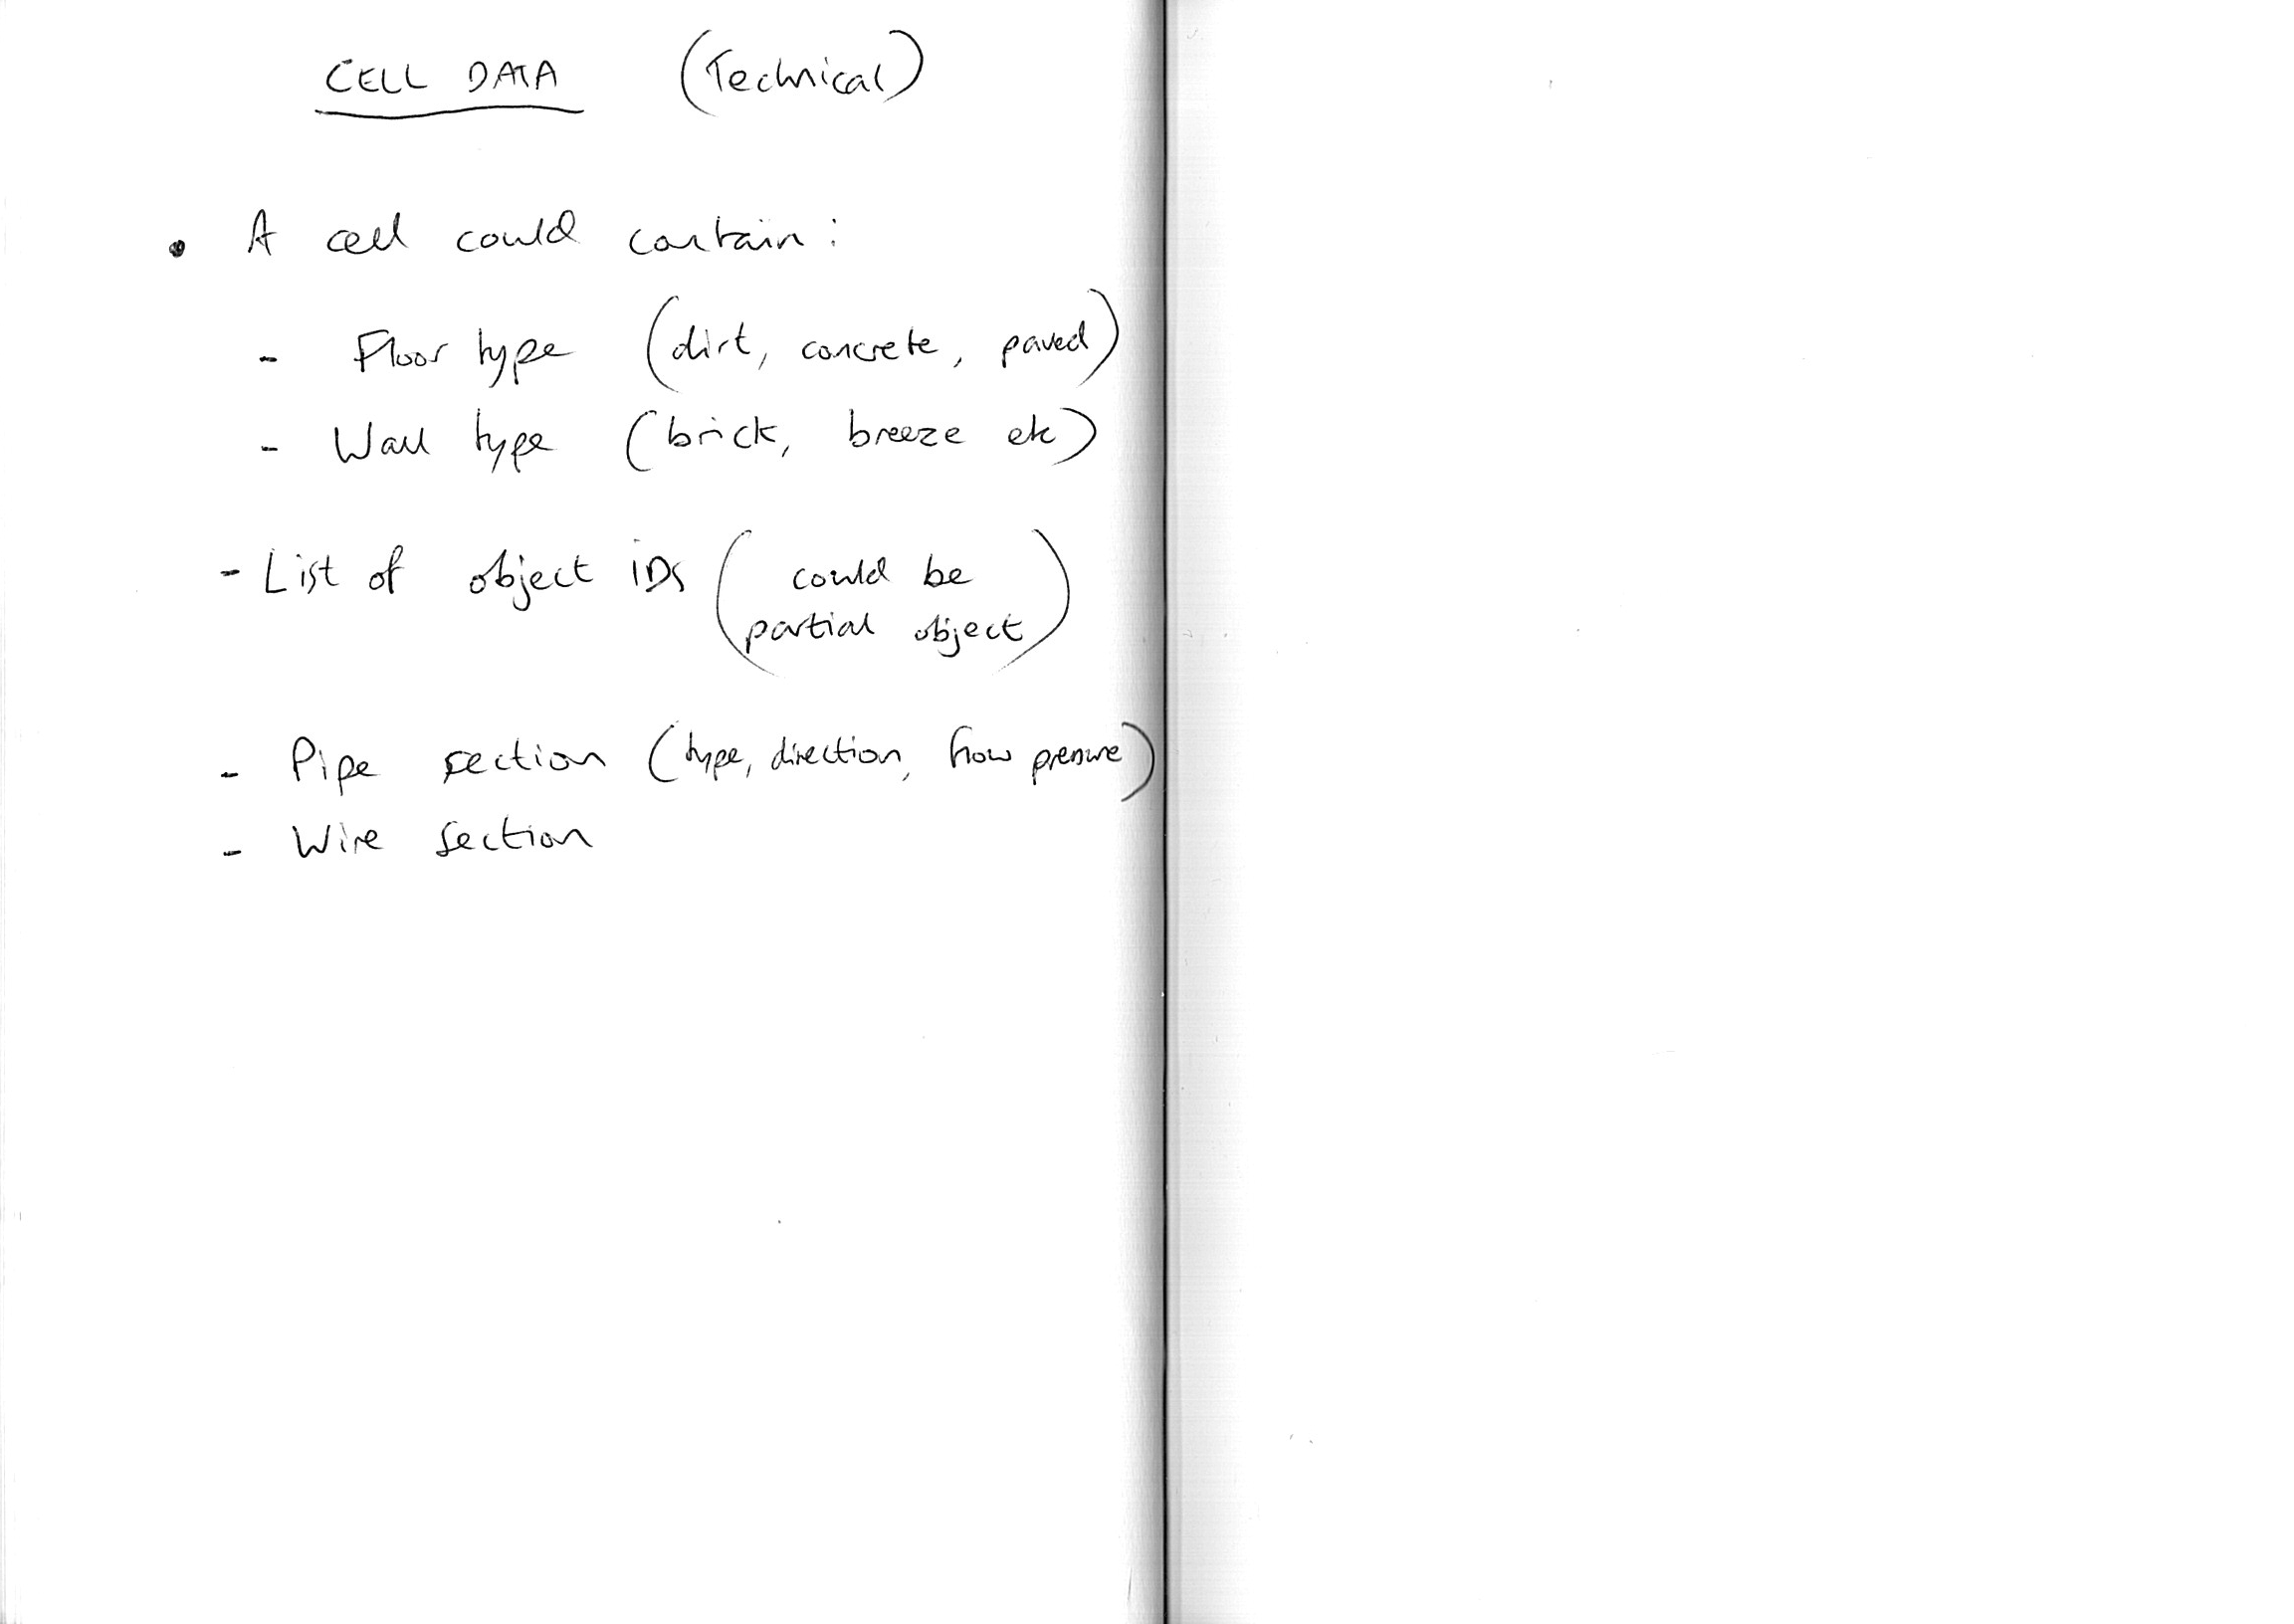 CELL DATA (Technical)
• A cell could contain:
- Floor type (dirt, concrete, paved)
- Wall type (brick, breeze etc)
- List of object IDs (could be
partial object)
- Pipe section (type, direction, flow pressure)
- Wire section